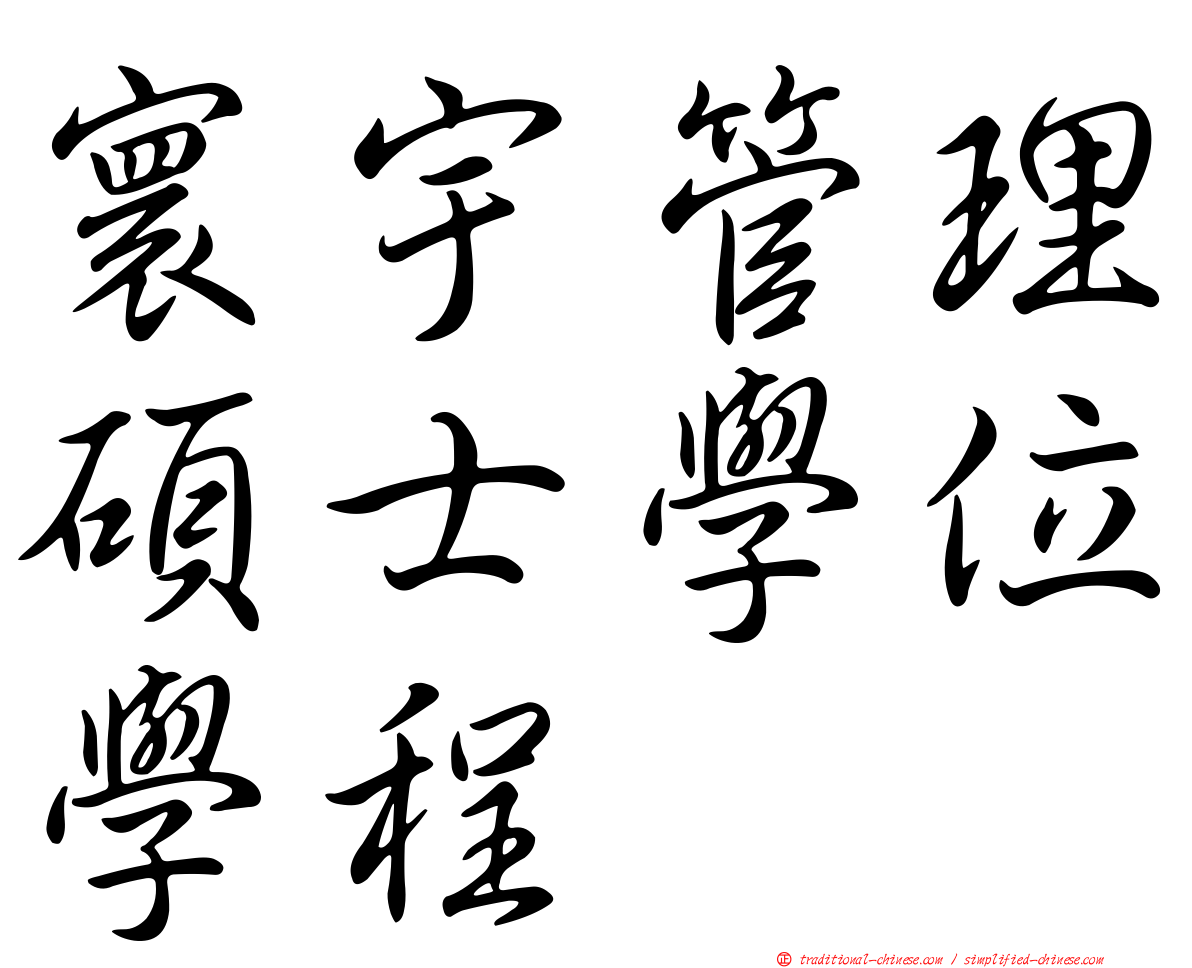 寰宇管理
碩士學位
學程
正 traditional-chinese.com / simplified-chinese.com